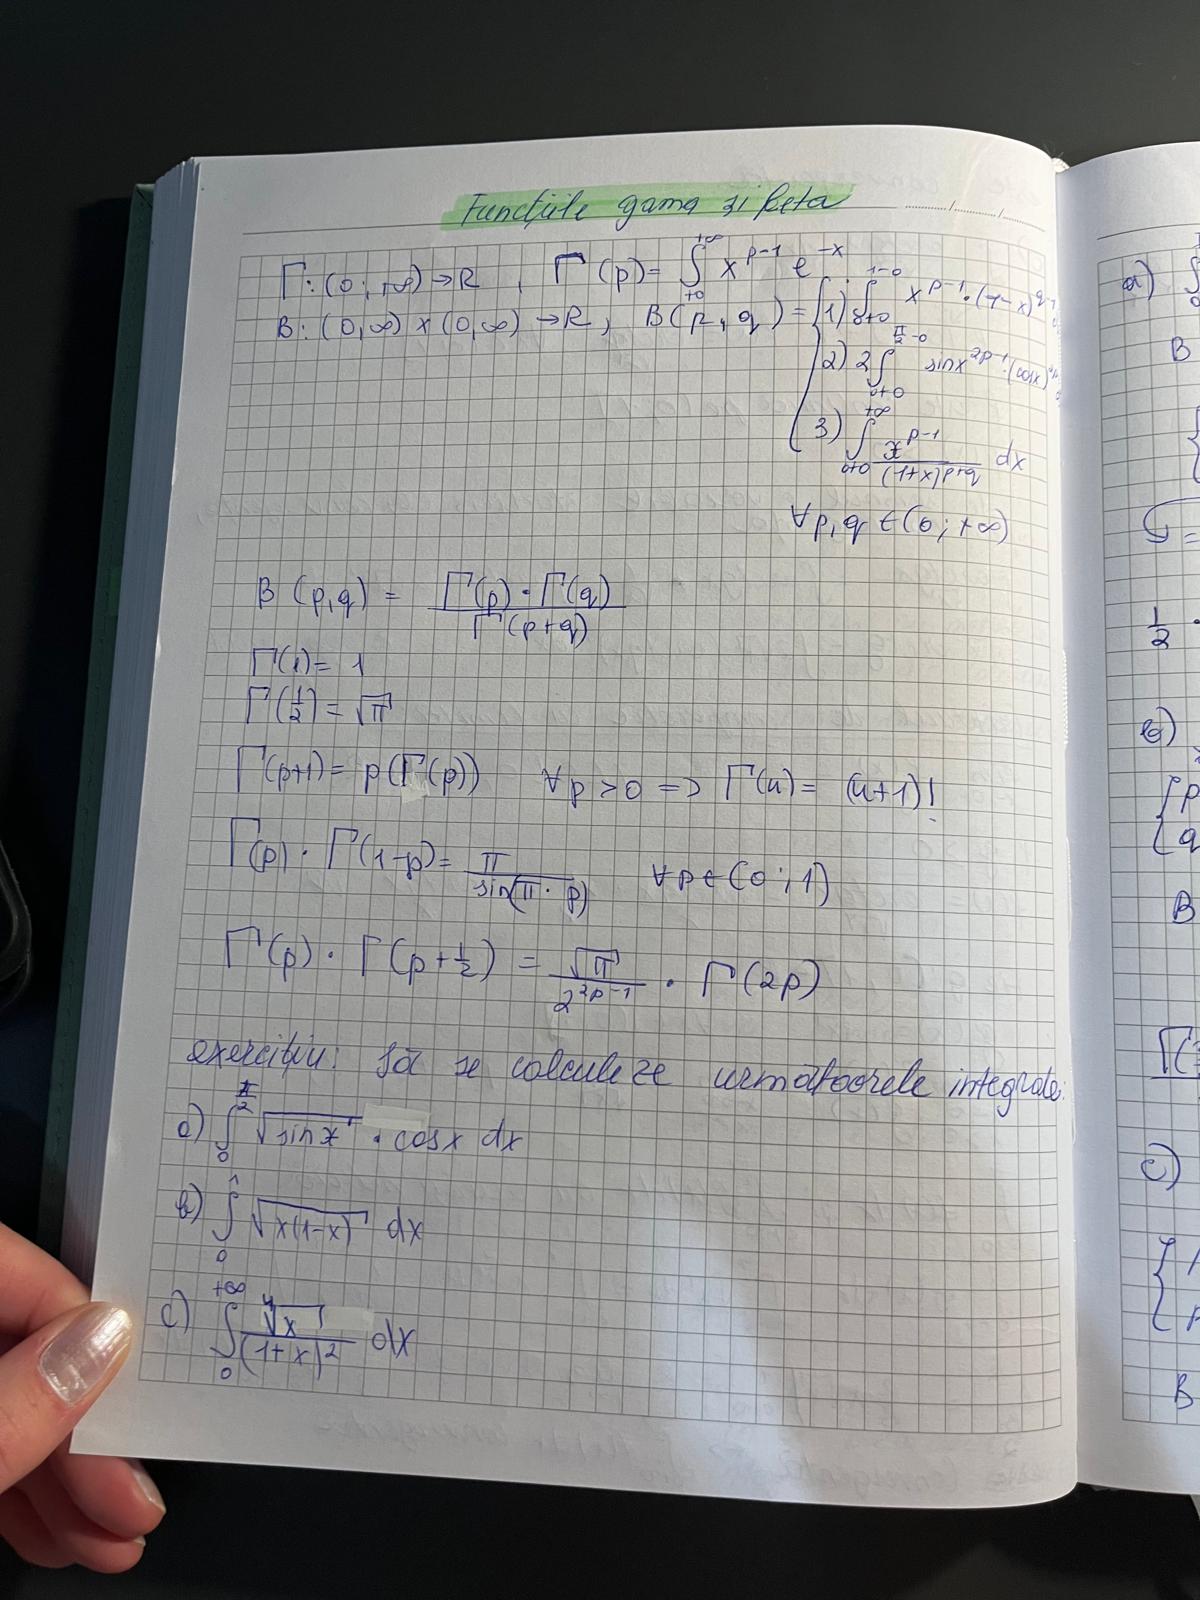 Funcțiile gama și Beta
Γ: (0; +∞) → R, Γ(p) = ∫_{+0}^{+∞} x^{p-1} e^{-x}
B: (0,∞) × (0,∞) → R, B(p,q) = { 1) ∫_{0+0}^{1-0} x^{p-1} · (1-x)^{q-1}
2) 2∫_{0+0}^{π/2-0} sin x^{2p-1} · (cos x)
3) ∫_{0+0}^{+∞} x^{p-1}/(1+x)^{p+q} dx
∀ p,q ∈ (0; +∞)
B (p,q) = Γ(p) · Γ(q) / Γ(p+q)
Γ(1) = 1
Γ(1/2) = √π
Γ(p+1) = p(Γ(p)) ∀ p > 0 => Γ(n) = (n+1)!
Γ(p) · Γ(1-p) = π / sin(π · p) ∀ p ∈ (0; 1)
Γ(p) · Γ(p+1/2) = √π / 2^{2p-1} · Γ(2p)
exercițiu: Să se calculeze următoarele integrale:
a) ∫_0^{π/2} √(sin x) · cos x dx
b) ∫_0^1 √(x(1-x)) dx
c) ∫_0^{+∞} ⁴√x / (1+x)^2 dx
a)
B
=
1/2 ·
b)
{ p
q
B
c)
B